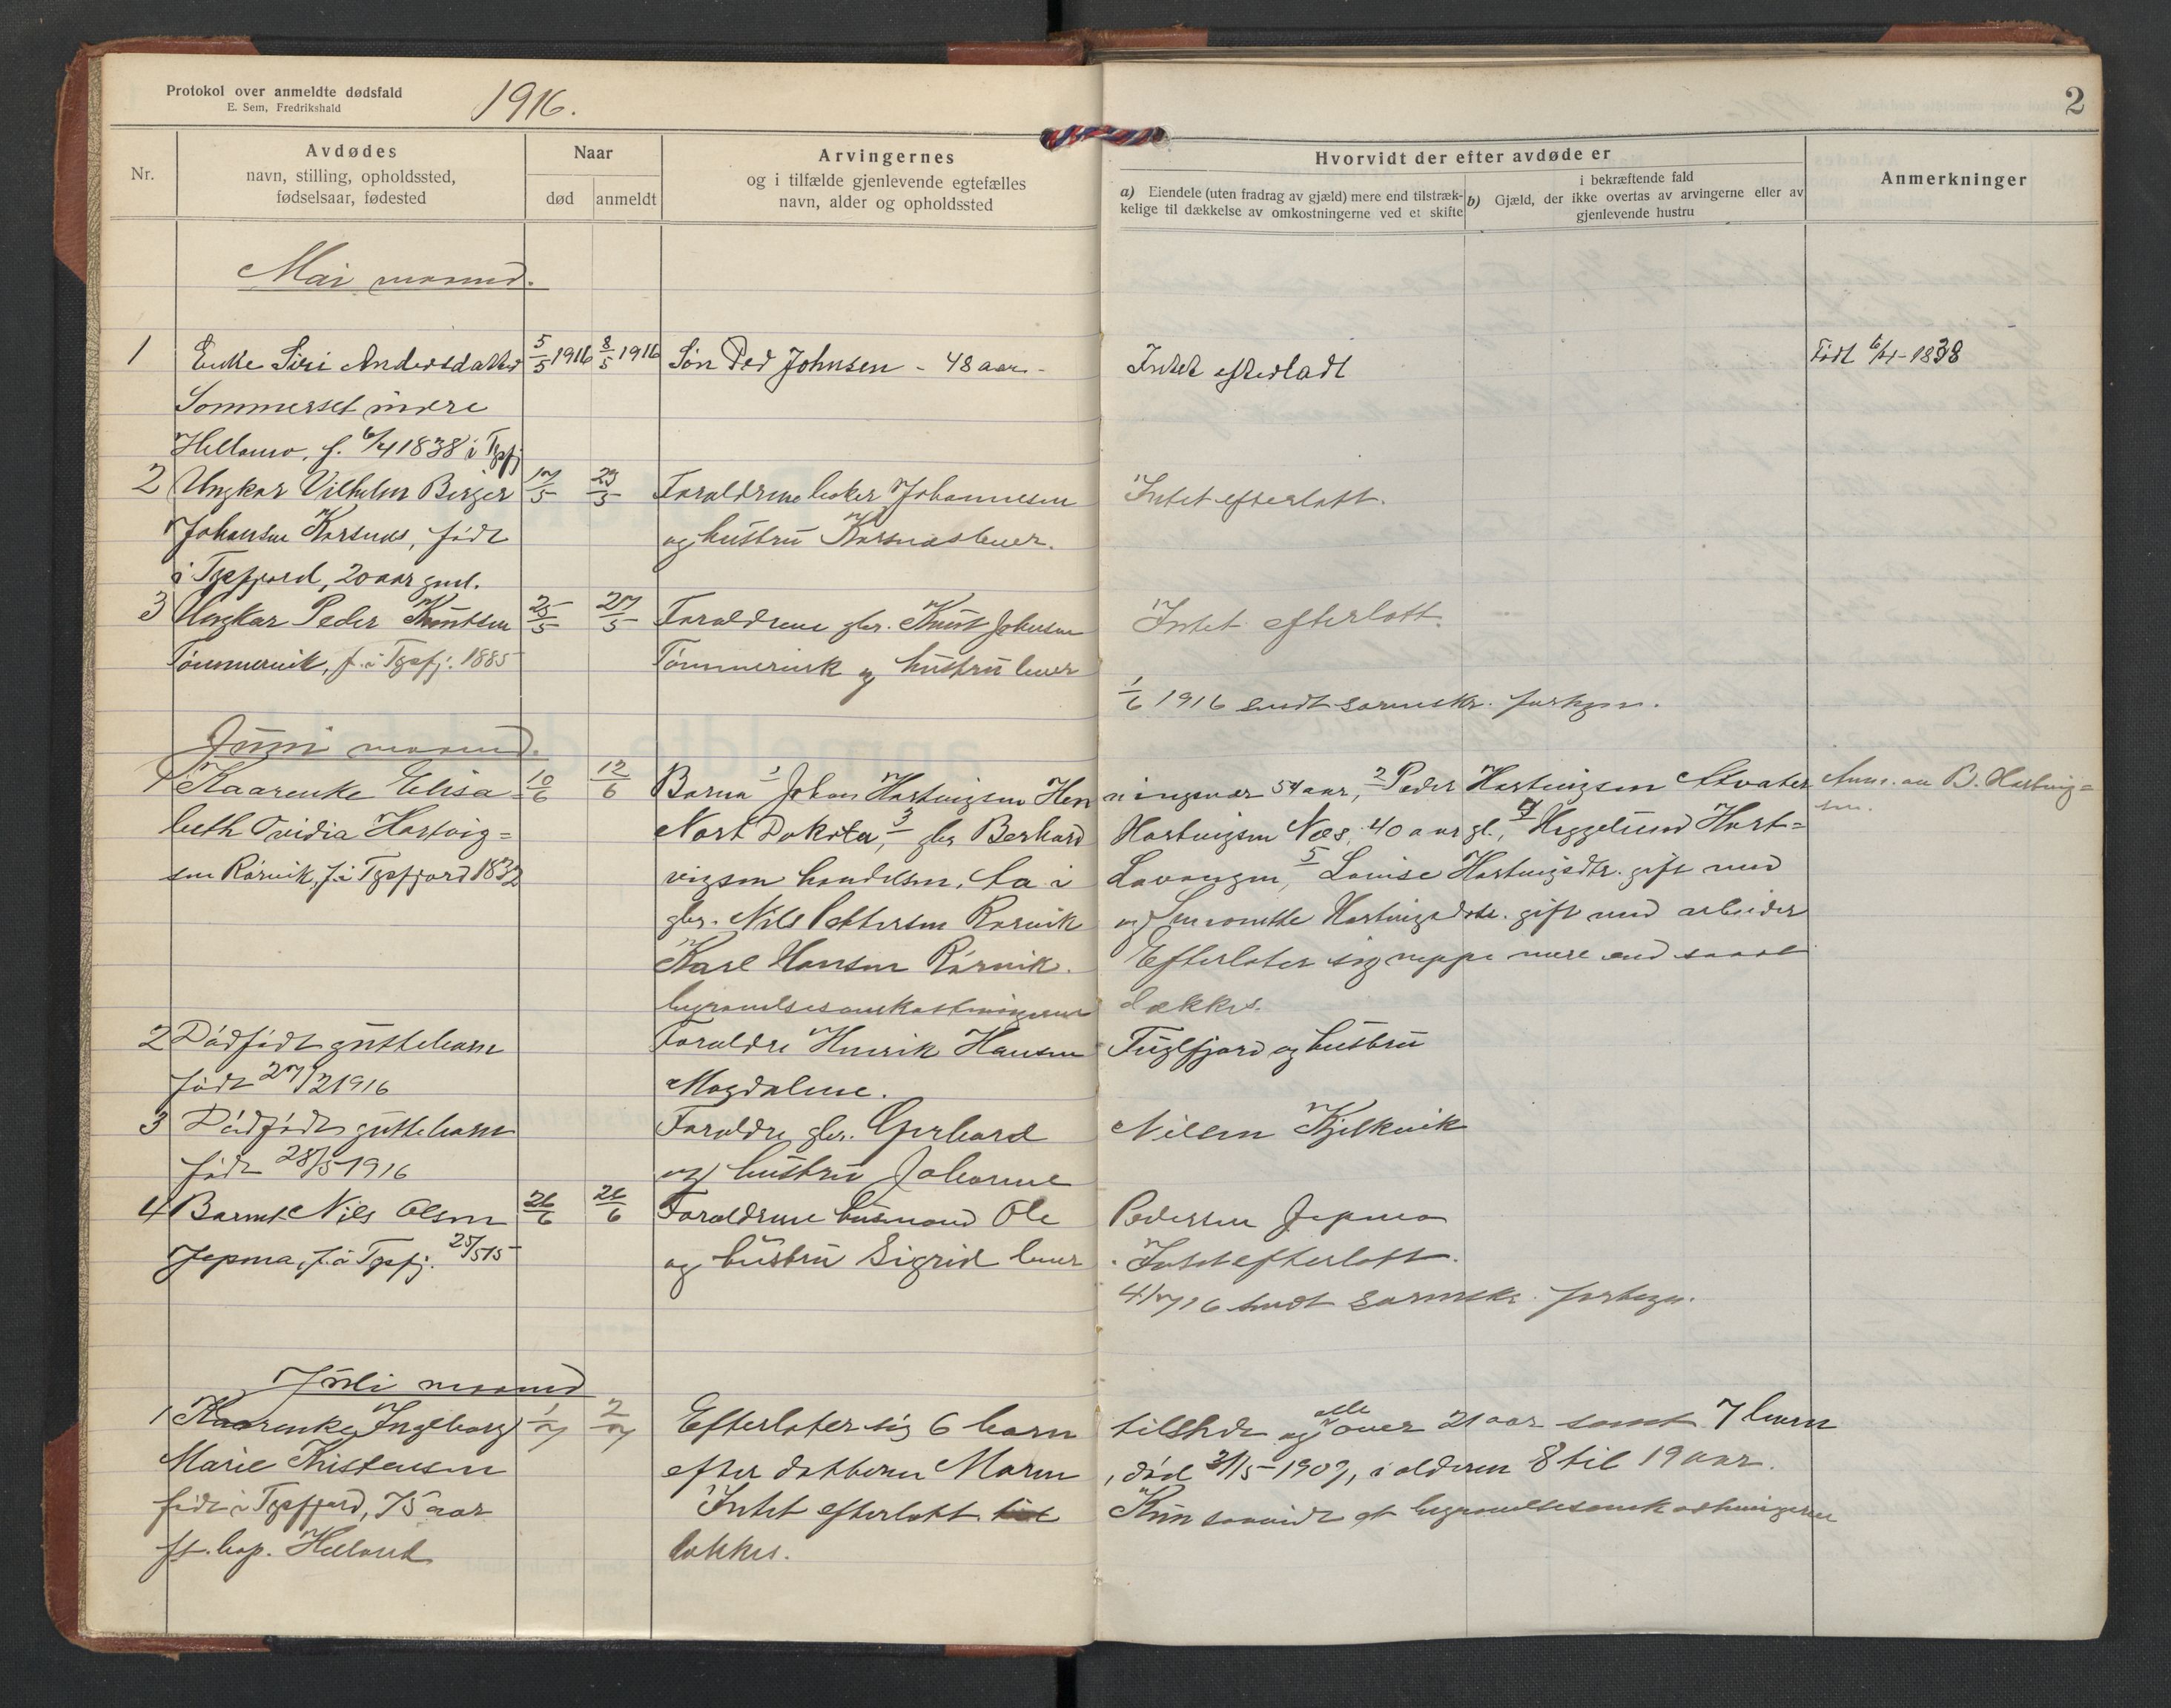 Protokol over anmeldte dødsfald
E. Sem, Fredrikshald
1916.
2
Nr.
Avdødes
navn, stilling, opholdssted,
fødselsaar, fødested
Naar
død anmeldt
Arvingernes
og i tilfælde gjenlevende egtefælles
navn, alder og opholdssted
Hvorvidt der efter avdøde er
a) Eiendele (uten fradrag av gjæld) mere end tilstræk-
kelige til dækkelse av omkostningerne ved et skifte
i bekræftende fald
b) Gjæld, der ikke overtas av arvingerne eller av
gjenlevende hustru
Anmerkninger
Mai maaned.
1 Enke Siri Andersdatter 5/5 1916 8/5 1916 Søn Ped Johnsen - 48 aar - Intet efterladt Født 6/4-1838
Sommerset indre
Hellemo, f. 6/4 1838 i Tysfj
2 Ungkar Vilhelm Berger 17/5 23/5 Forældrene Johannesen Intet efterlatt.
Johansen Korsnes, født og hustru Korsnes lever.
i Tysfjord, 20 aar gml.
3 Ungkar Peder Knutsen 25/5 27/5 Forældrene gbr. Knut Johnsen Intet efterlatt.
Tømmervik, f. i Tysfj. 1885 Tømmervik og hustru lever
1/6 1916 sendt sorenskr. fortegn.
Juni maaned.
1 Kaarenke Elisa 10/6 12/6 Barna 1 Johan Hartvigsen Hen ningsvær 54 aar, 2 Peder Hartvigsen Anm. av B. Hartvig=
beth Ovidia Hartvig= Nort Dakota, 3 gbr Berhard Hartvigsen Næs, 40 aar gl., 4 Hartsen.
sen Rørvik, f. i Tysfjord 1832 vigsen handelsm. i Lavangen, 5 Louise Hartvigsdtr. gift med
gbr. Nils Pettersen Rørvik og Hartvigsdtr. gift med arbeider
Karl Hansen Rørvik. Efterlater sig neppe mere end saa at
begravelsesomkostningerne dækkes.
2 Dødfødt guttebarn Forældre Henrik Hansen Fuglfjord og hustru
født 27/2 1916 Magdalene.
3 Dødfødt guttebarn Forældre gbr. Gerhard Nilsen Kjelkvik
født 28/5 1916 og hustru Johanne
4 Barnet Nils Olsen 26/6 26/6 Forældrene husmand Ole Pedersen Jepma
Jepma, f. i Tysfj. 25/5 15 og hustru Sigrid lever. Intet efterlatt.
4/7 16 sendt sorenskr. fortegn.
Juli maaned
1 Kaarenke Ingeborg 1/7 2/7 Efterlater sig 6 barn tilstede og alle over 21 aar samt 7 barn
Marie Kristensen efter datteren Maren, død 31/5-1909, i alderen 8 til 19 aar.
født i Tysfjord, 75 aar Intet efterlatt. Kun saavidt at begravelsesomkostningerne
Helland dækkes.